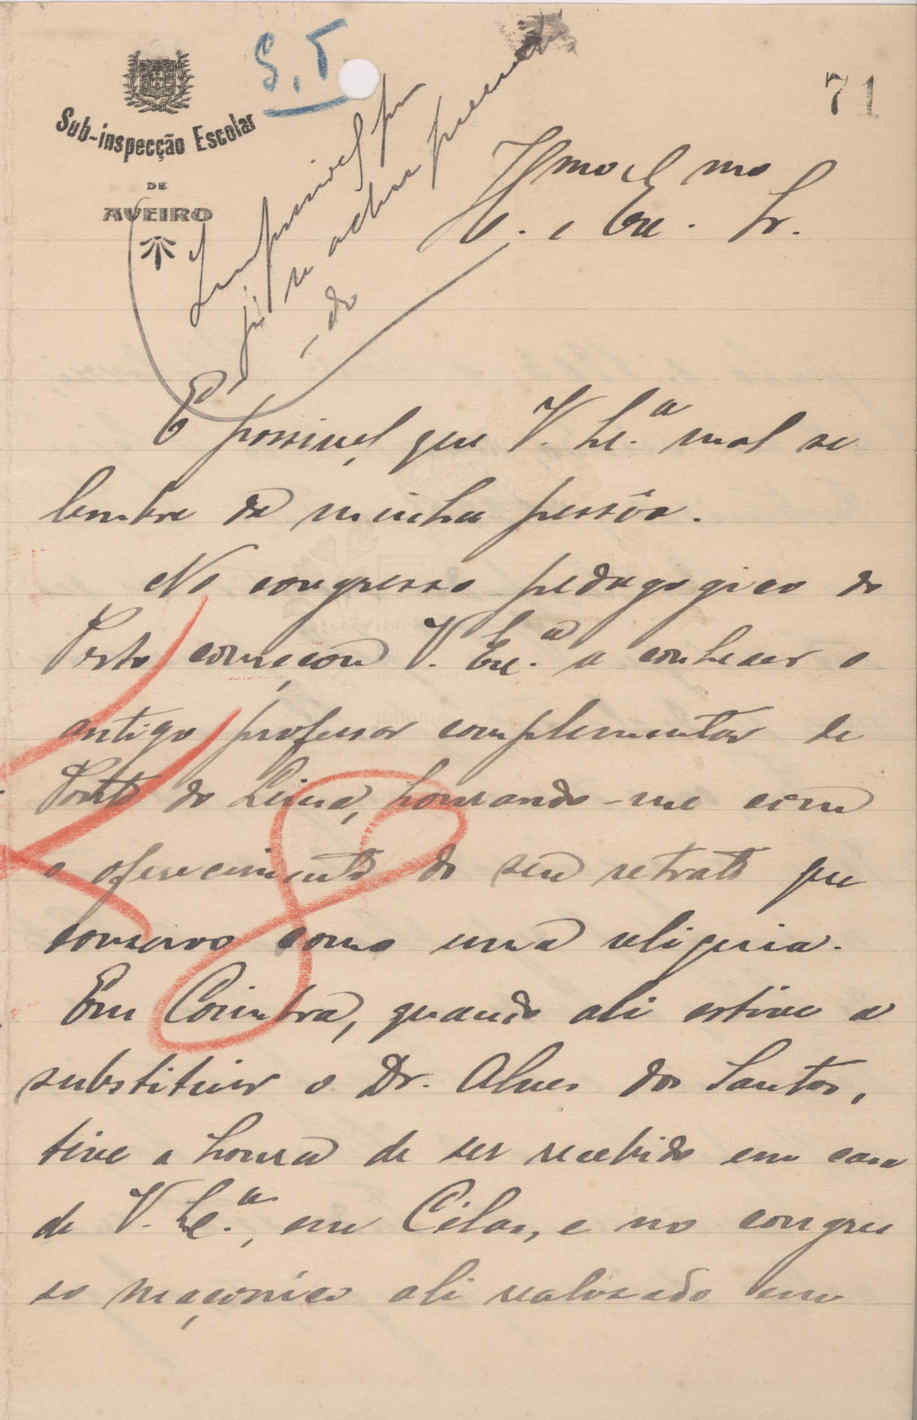 S. T.
71
Sub-inspecção Escolar
DE
AVEIRO
Impossivel por
já se achar preenchi
-do
Illmo e Exmo
Sr.
É possivel que V. Ex.ª mal se
lembre da minha pessôa.
No congresso pedagogico do
Porto começou V. Exc.ª a conhecer o
antigo professor complementar de
Ponte do Lima, honrando-me com
o oferecimento do seu retrato que
conservo como uma reliquia.
Em Coimbra, quando ali estive a
substituir o Dr. Alves dos Santos,
tive a honra de ser recebido em casa
de V. Ex.ª, em Cêlas, e no congres
so maçonico ali realisado em
28